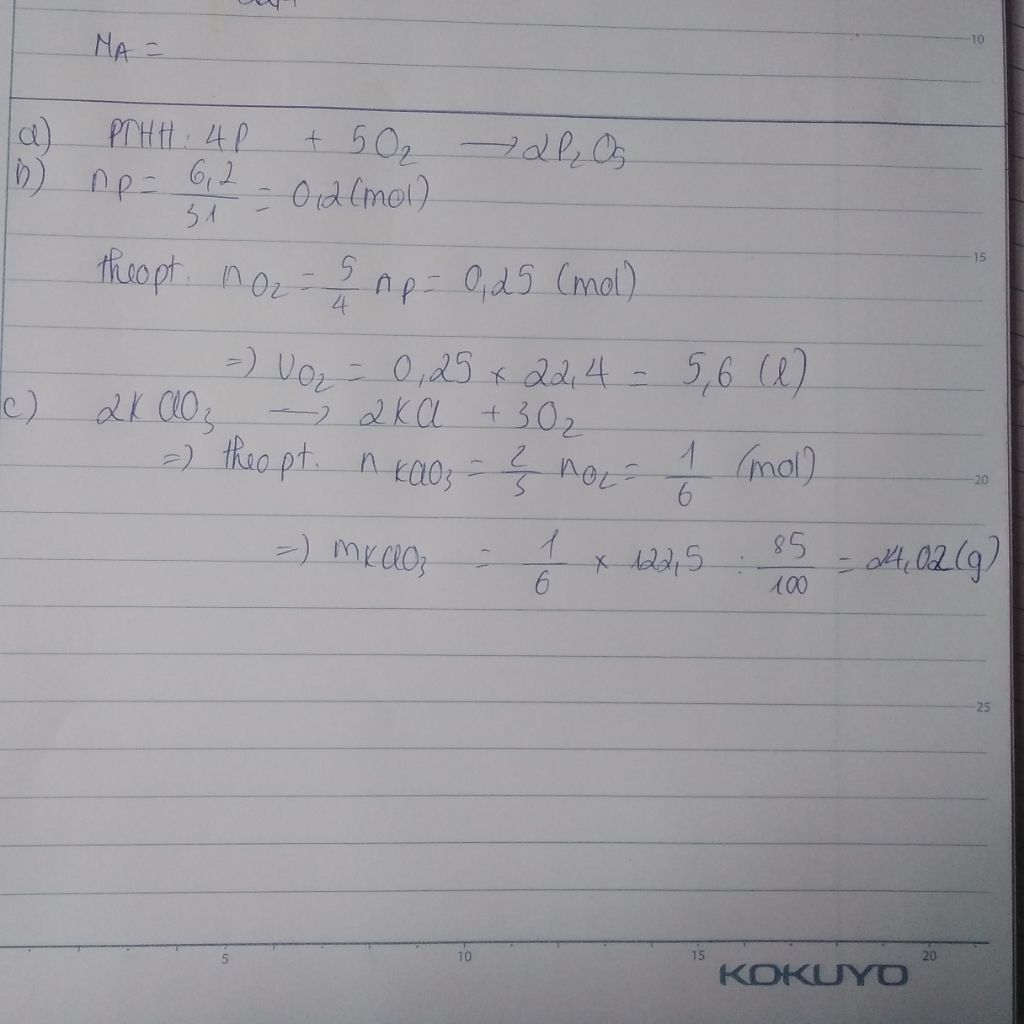 MA =
10
a) PTHH: 4P + 5O2 → 2P2O5
b) nP = 6,2/31 = 0,2 (mol)
15
theo pt. nO2 = 5/4 nP = 0,25 (mol)
=) VO2 = 0,25 x 22,4 = 5,6 (l)
c) 2KClO3 → 2KCl + 3O2
=) theo pt. nKClO3 = 2/3 nO2 = 1/6 (mol)
20
=) mKClO3 = 1/6 x 122,5 : 85/100 = 24,02 (g)
25
5 10 15 20
KOKUYO